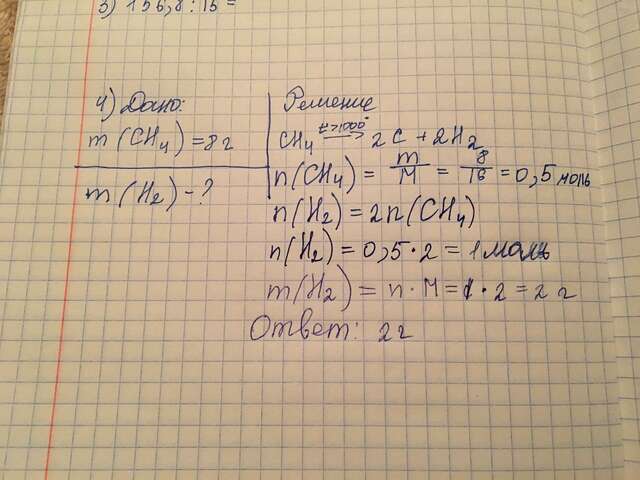 3) 156,8 : 16 =
4) Дано:
m (CH4) = 8 г
m (H2) - ?
Решение
CH4 t>1000° → 2C + 2H2
n(CH4) = m/M = 8/16 = 0,5 моль
n(H2) = 2n(CH4)
n(H2) = 0,5 · 2 = 1 моль
m(H2) = n · M = 1 · 2 = 2 г
Ответ: 2 г